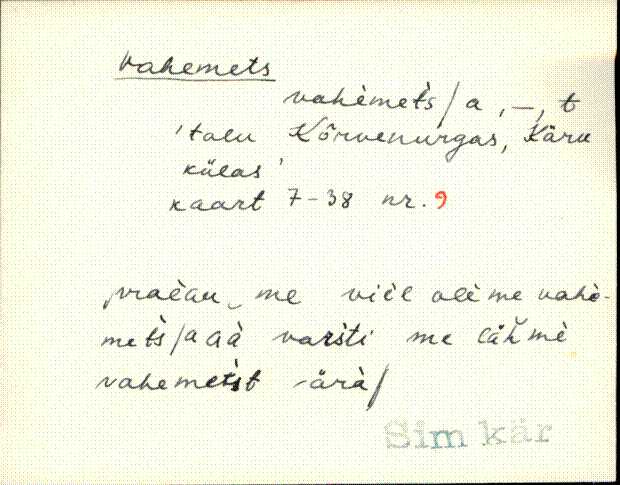 vahemets
vahèmet̀s/a, –, t
'talu Kõrvenurgas, Käru
külas'
kaart 7-38 nr. 9
me vièl olème vahè-
met̀s/a aà varsti me lähmè
vahemetst ärà/
Sim kär